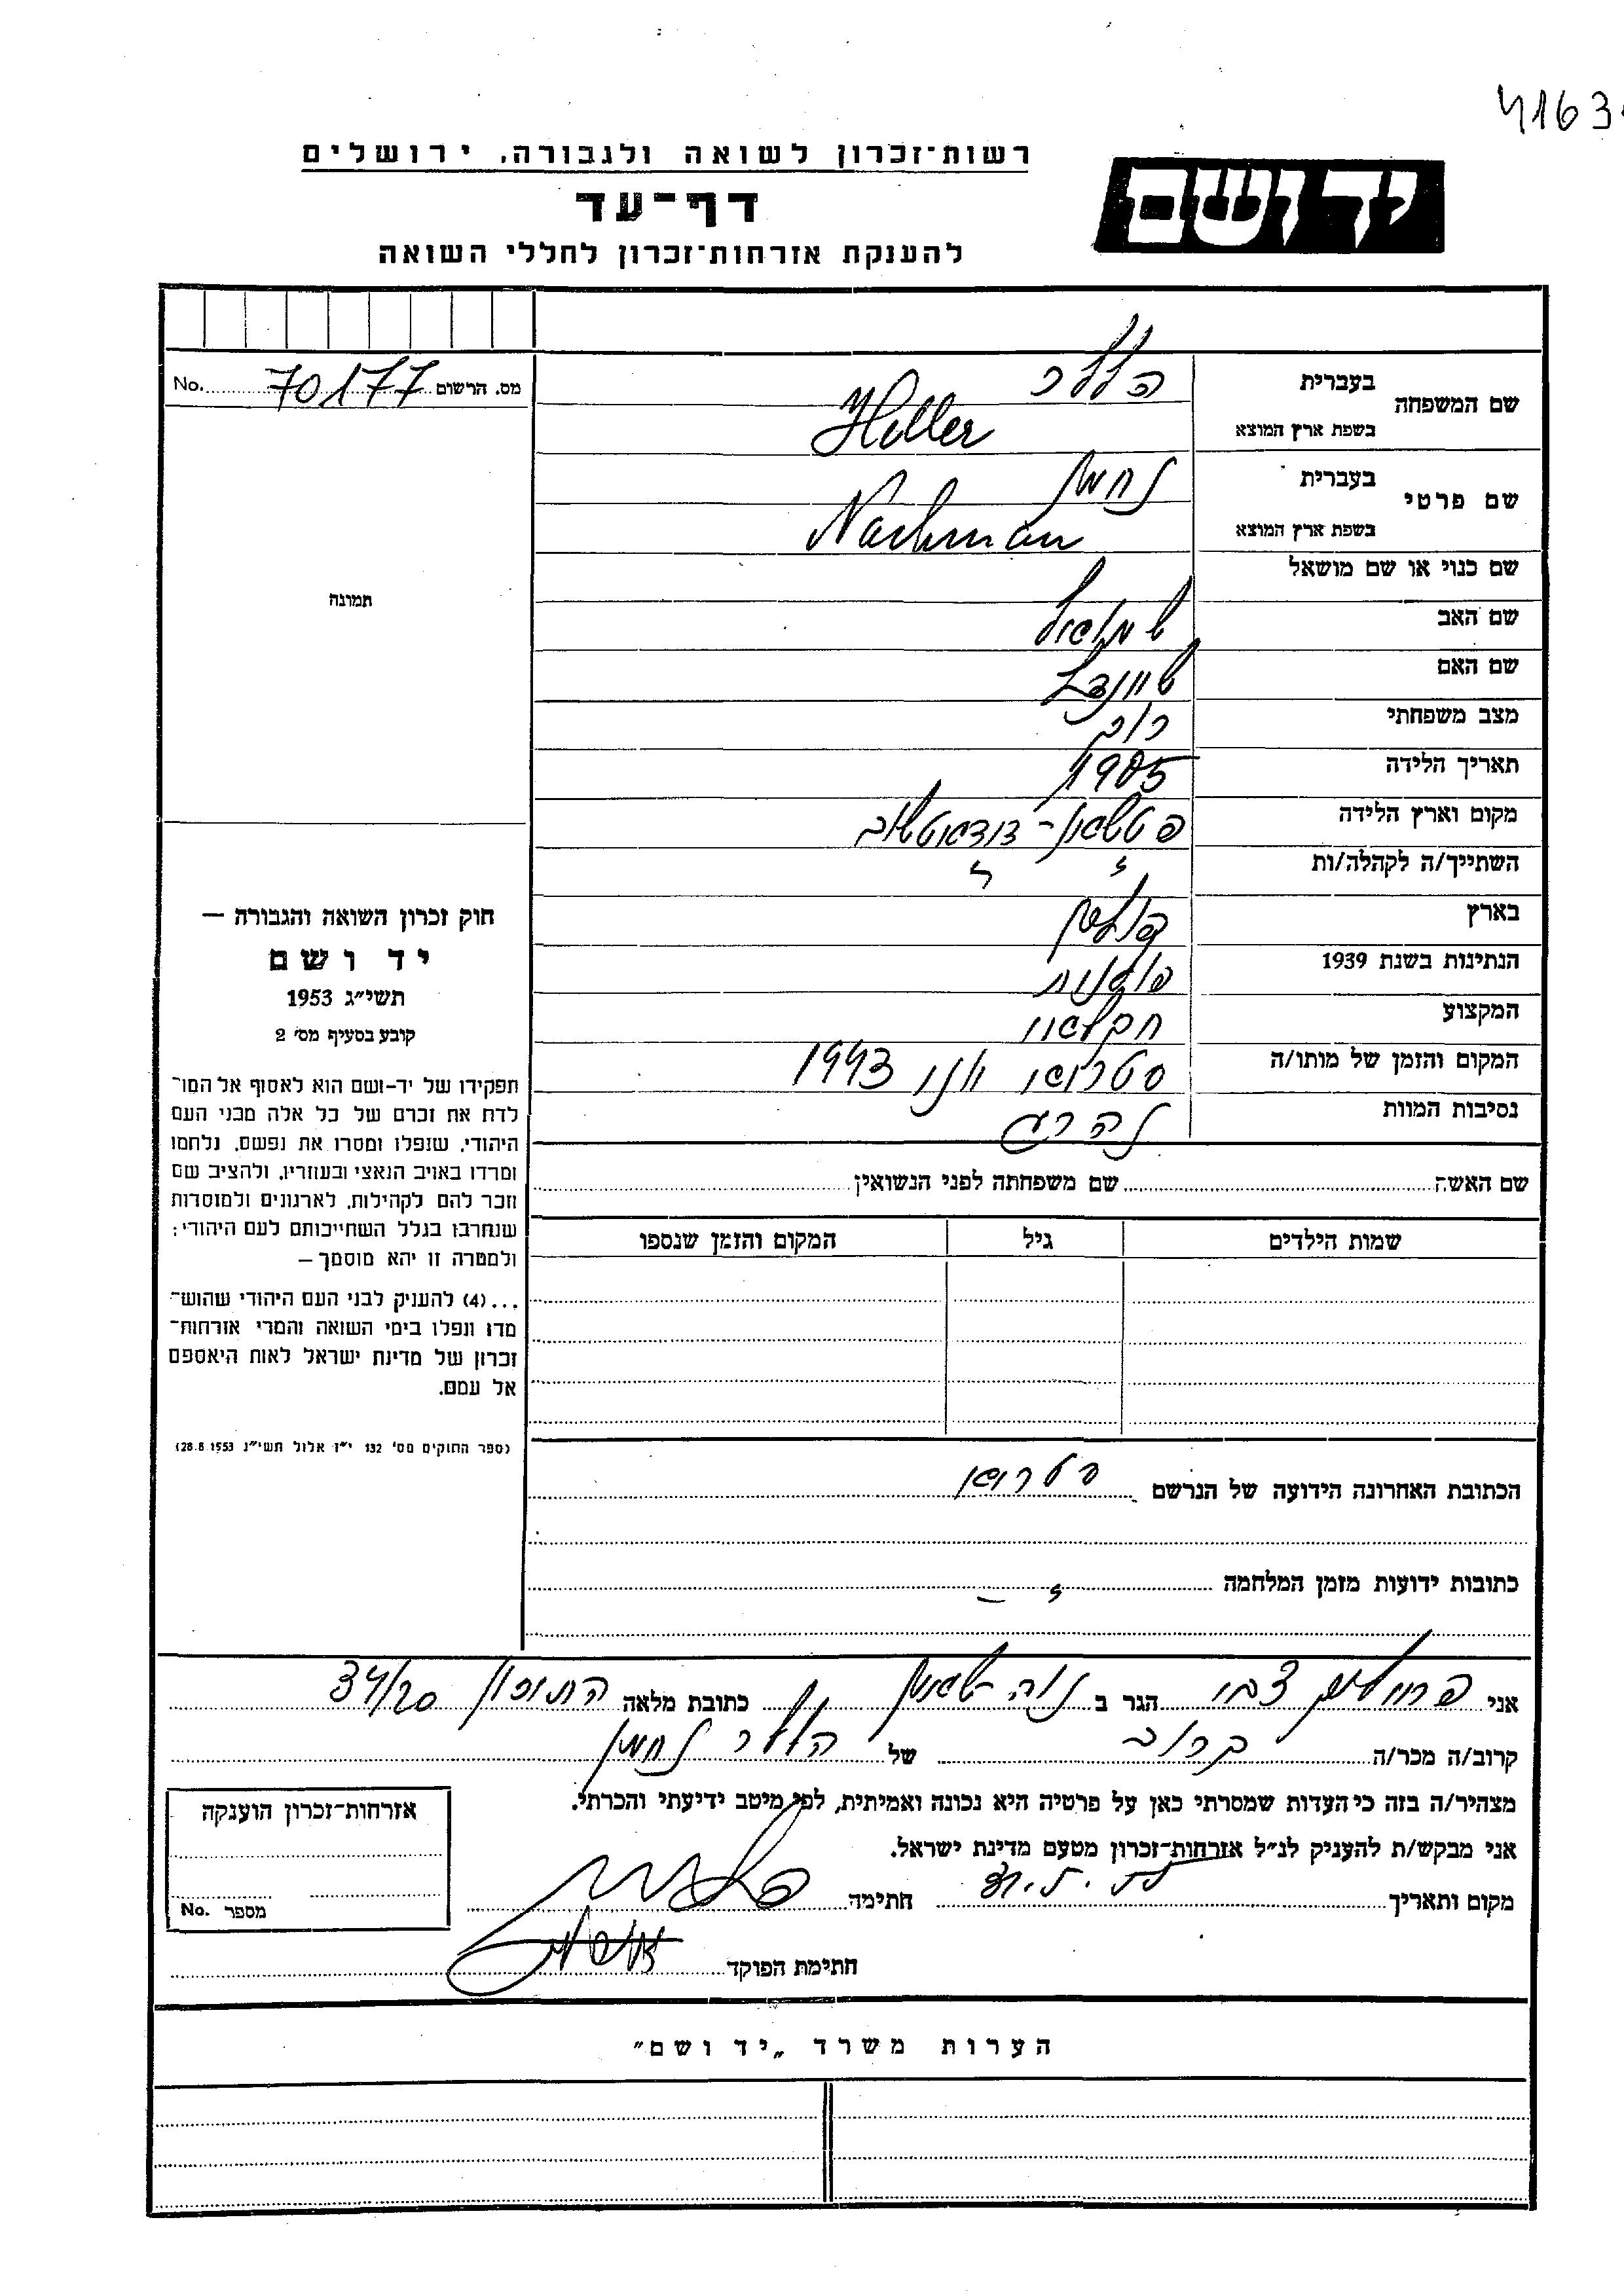 4163
רשות־זכרון לשואה ולגבורה, ירושלים
יד ושם
דף־עד
להענקת אזרחות־זכרון לחללי השואה
No. 70177 מס. הרשום
שם המשפחה בעברית הללר
בשפת ארץ המוצא Heller
שם פרטי בעברית נחמן
בשפת ארץ המוצא Nachman
תמונה
שם כנוי או שם מושאל
שם האב שמואל
שם האם שיינדל
מצב משפחתי
תאריך הלידה 1905
מקום וארץ הלידה
השתייך/ה לקהלה/ות
בארץ פולין
הנתינות בשנת 1939 פולנית
המקצוע חקלאי
המקום והזמן של מותו/ה יוני 1943
נסיבות המוות נהרג
שם האשה שם משפחתה לפני הנשואין
שמות הילדים גיל המקום והזמן שנספו
חוק זכרון השואה והגבורה —
יד ושם
תשי״ג 1953
קובע בסעיף מס׳ 2
תפקידו של יד-ושם הוא לאסוף אל המו־
לדת את זכרם של כל אלה מבני העם
היהודי, שנפלו ומסרו את נפשם, נלחמו
ומרדו באויב הנאצי ובעוזריו, ולהציב שם
וזכר להם לקהילות, לארגונים ולמוסדות
שנחרבו בגלל השתייכותם לעם היהודי;
ולמטרה זו יהא מוסמך —
...(4) להעניק לבני העם היהודי שהוש־
מדו ונפלו בימי השואה והמרי אזרחות־
זכרון של מדינת ישראל לאות היאספם
אל עמם.
(ספר החוקים מס׳ 132 י״ז אלול תשי״ג 28.8.1953)
הכתובת האחרונה הידועה של הנרשם
כתובות ידועות מזמן המלחמה
אני צבי הגר ב נוה שאנן כתובת מלאה התיכון 34/20
קרוב/ה מכר/ה קרוב של הלר נחמן
מצהיר/ה בזה כי העדות שמסרתי כאן על פרטיה היא נכונה ואמיתית, לפי מיטב ידיעתי והכרתי.
אני מבקש/ת להעניק לנ״ל אזרחות־זכרון מטעם מדינת ישראל.
מקום ותאריך חתימה
חתימת הפוקד
אזרחות־זכרון הוענקה
No. מספר
הערות משרד „יד ושם״